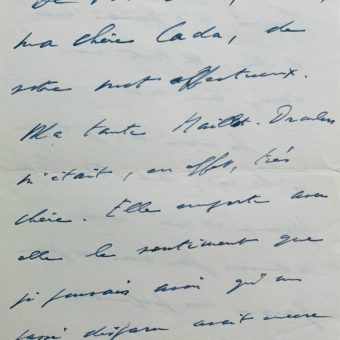 ma chère Cada, de
votre mot affectueux.
Ma tante Maillot-
m'était, en effet, très
chère. Elle emporte avec
elle le sentiment que
je pouvais avoir qu'un
passé disparu avait encore